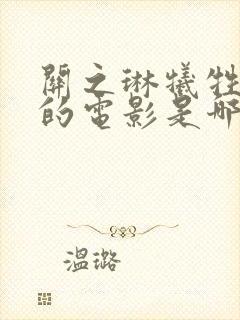 關之琳犧牲
的電影是哪
溫璐